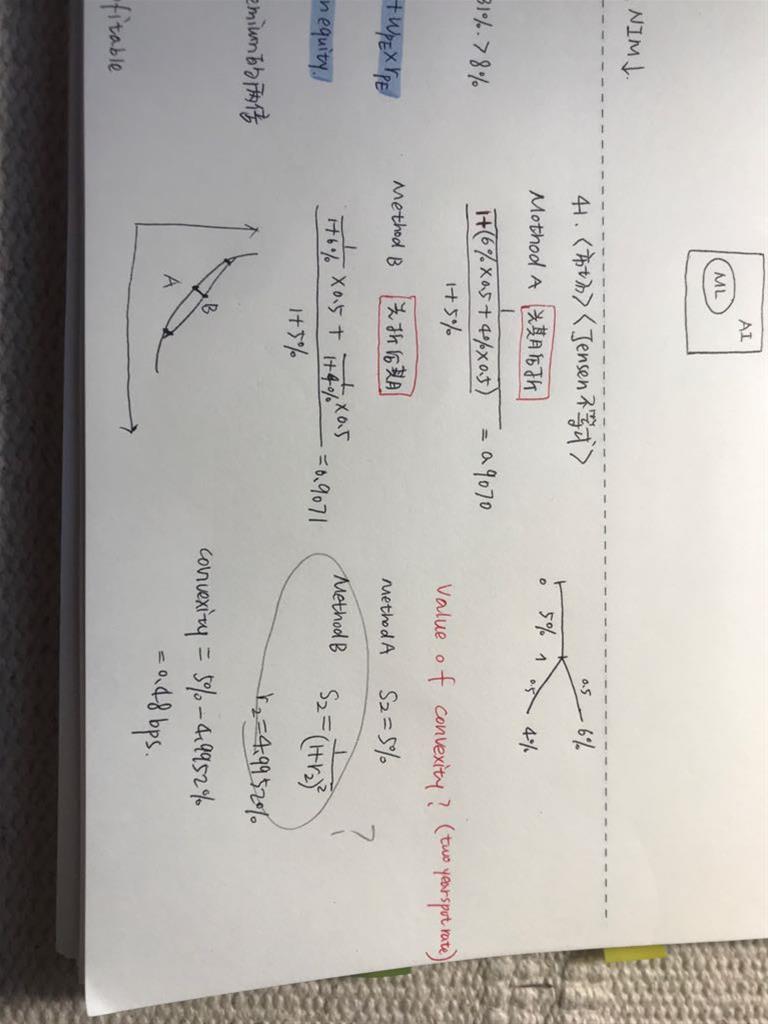 NIM↓.
AI
ML
31%. > 8%
+ WPE × rPE
n equity.
emium的两倍
fitable
41. <市场> <Jensen不等式>
Method A 先期后折
1
1+(6%×0.5+4%×0.5)
1+5%
= 0.9070
Method B 先折后期
1/(1+6%) ×0.5 + 1/(1+4%) ×0.5
1+5%
= 0.9071
A
B
0
5%
1
0.5
6%
0.5
4%
Value of convexity? (two year spot rate)
Method A S2=5%
Method B S2=1/(1+r2)²
r2=4.9952%
?
convexity = 5% - 4.9952%
= 0.48 bps.